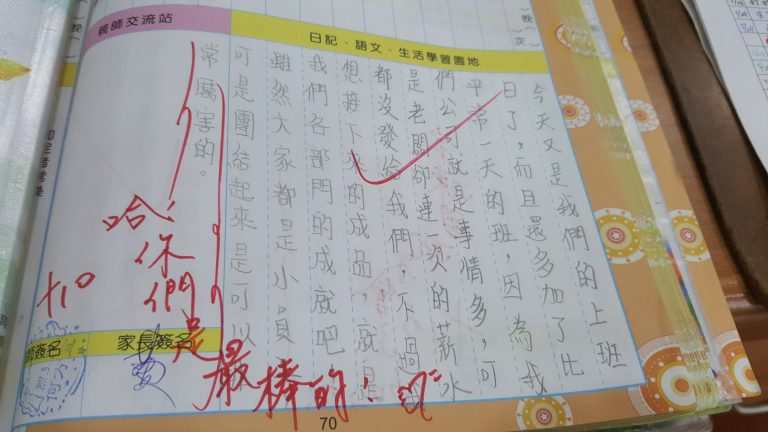 親師交流站
日記、語文、生活學習園地
今天又是我們的上班
日了，而且還多加了比
平常一天的班，因為我
們公司就是事情多，可
是老闆卻連一次的薪水
都沒發給我們，不過我
想接下來的成品，就是
我們各部門的成就吧
雖然大家都是小員
可是團結起來是可以
常厲害的。
哈！
你們是
最棒的！
+10
家長簽名
簽名
70